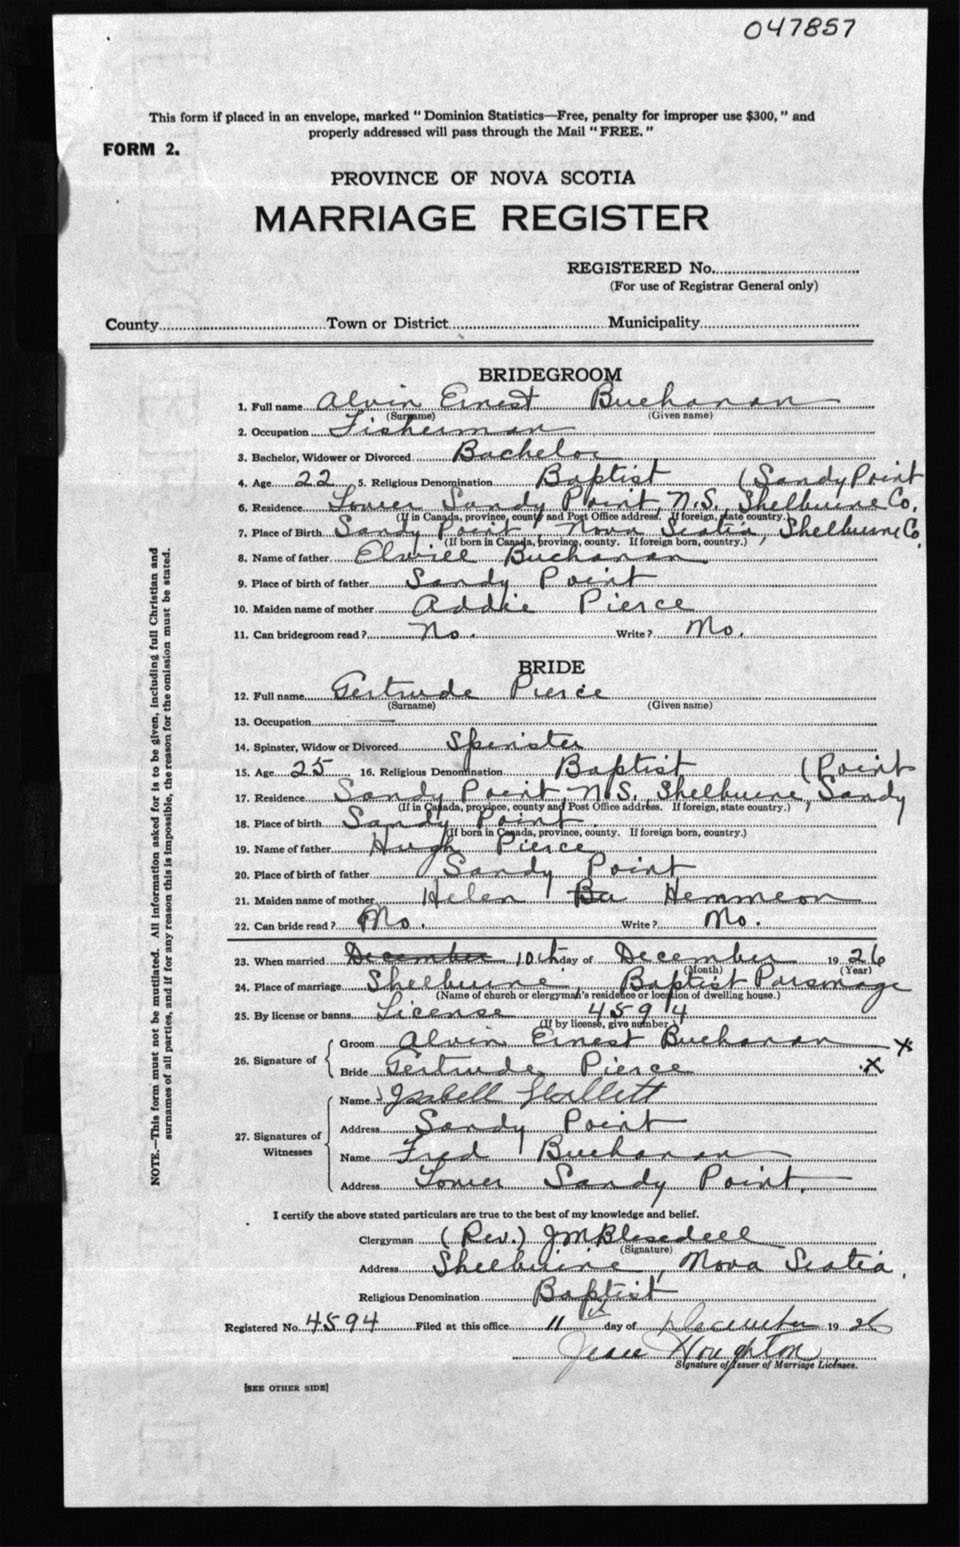 047857
This form if placed in an envelope, marked "Dominion Statistics—Free, penalty for improper use $300," and
properly addressed will pass through the Mail "FREE."
FORM 2.
PROVINCE OF NOVA SCOTIA
MARRIAGE REGISTER
REGISTERED No.
(For use of Registrar General only)
County Town or District Municipality
BRIDEGROOM
1. Full name Alvin Ernest Buchanan
(Surname) (Given name)
2. Occupation Fisherman
3. Bachelor, Widower or Divorced Bachelor
4. Age 22 5. Religious Denomination Baptist (Sandy Point
6. Residence Lower Sandy Point, N.S., Shelburne Co.
(If in Canada, province, county and Post Office address. If foreign, state country.)
7. Place of Birth Sandy Point, Nova Scotia, Shelburne Co.
(If born in Canada, province, county. If foreign born, country.)
8. Name of father Buchanan
9. Place of birth of father Sandy Point
10. Maiden name of mother Addie Pierce
11. Can bridegroom read? No. Write? No.
BRIDE
12. Full name Gertrude Pierce
(Surname) (Given name)
13. Occupation —
14. Spinster, Widow or Divorced Spinster
15. Age 25 16. Religious Denomination Baptist (Point
17. Residence Sandy Point N.S., Shelburne, Sandy
(If in Canada, province, county and Post Office address. If foreign, state country.)
18. Place of birth Sandy Point.
(If born in Canada, province, county. If foreign born, country.)
19. Name of father Hugh Pierce
20. Place of birth of father Sandy Point
21. Maiden name of mother Helen Hemmeon
22. Can bride read? No. Write? No.
23. When married December 10th day of December 1926
(Month) (Year)
24. Place of marriage Shelburne, Baptist Parsonage
(Name of church or clergyman's residence or location of dwelling house.)
25. By license or banns License 4594
(If by license, give number)
26. Signature of
Groom Alvin Ernest Buchanan x
Bride Gertrude Pierce x
27. Signatures of Witnesses
Name Isabell
Address Sandy Point
Name Fred Buchanan
Address Lower Sandy Point.
I certify the above stated particulars are true to the best of my knowledge and belief.
Clergyman (Rev.) J M Blesedell
(Signature)
Address Shelburne, Nova Scotia.
Religious Denomination Baptist
Registered No. 4594 Filed at this office 11th day of December 1926
Houghton
Signature of Issuer of Marriage Licenses.
[SEE OTHER SIDE]
NOTE.—This form must not be mutilated. All information asked for is to be given, including full Christian and
surnames of all parties, and if for any reason this is impossible, the reason for the omission must be stated.